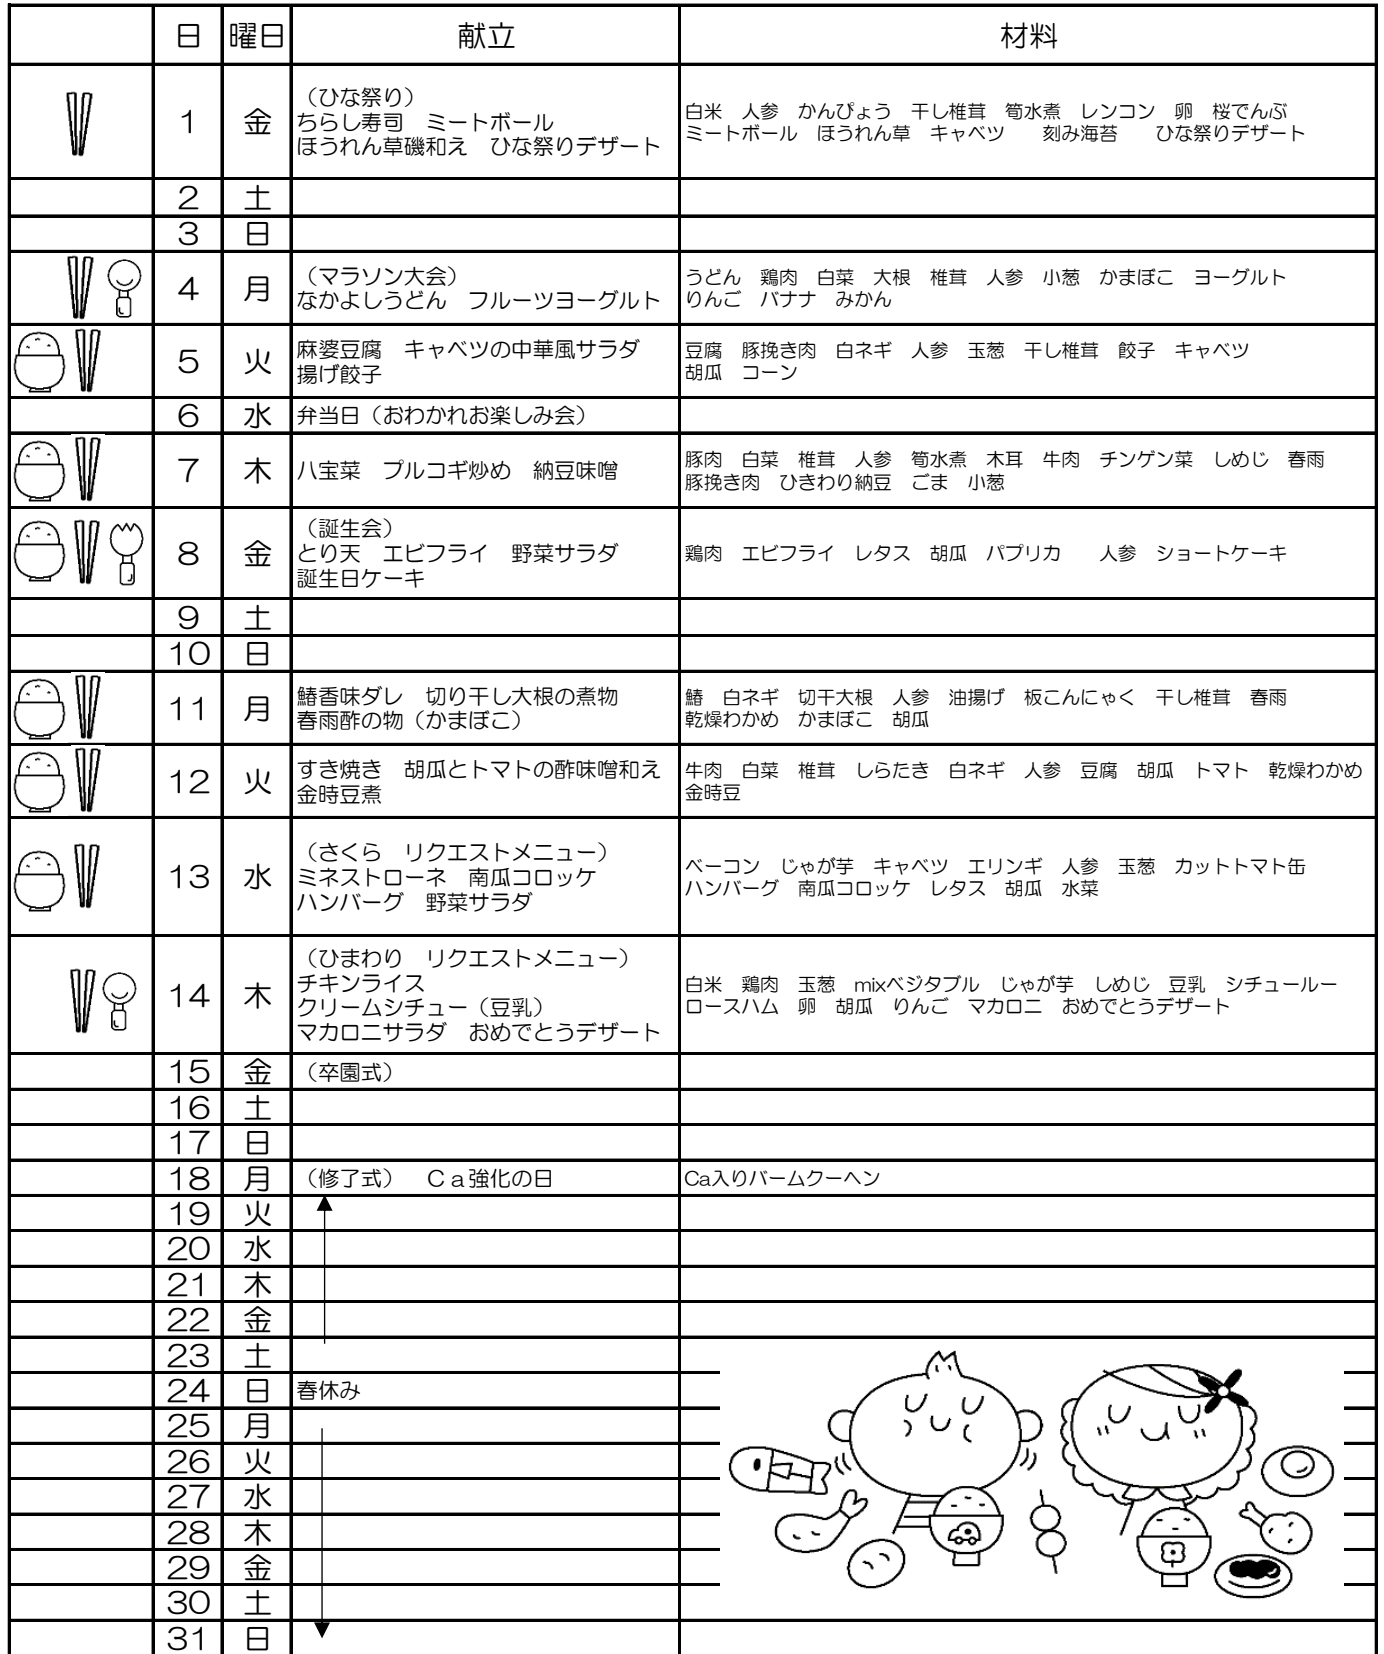 日 曜日 献立 材料
1 金 （ひな祭り）
ちらし寿司　ミートボール
ほうれん草磯和え　ひな祭りデザート
白米　人参　かんぴょう　干し椎茸　筍水煮　レンコン　卵　桜でんぶ
ミートボール　ほうれん草　キャベツ　　刻み海苔　　ひな祭りデザート
2 土
3 日
4 月 （マラソン大会）
なかよしうどん　フルーツヨーグルト
うどん　鶏肉　白菜　大根　椎茸　人参　小葱　かまぼこ　ヨーグルト
りんご　バナナ　みかん
5 火 麻婆豆腐　キャベツの中華風サラダ
揚げ餃子
豆腐　豚挽き肉　白ネギ　人参　玉葱　干し椎茸　餃子　キャベツ
胡瓜　コーン
6 水 弁当日（おわかれお楽しみ会）
7 木 八宝菜　プルコギ炒め　納豆味噌
豚肉　白菜　椎茸　人参　筍水煮　木耳　牛肉　チンゲン菜　しめじ　春雨
豚挽き肉　ひきわり納豆　ごま　小葱
8 金 （誕生会）
とり天　エビフライ　野菜サラダ
誕生日ケーキ
鶏肉　エビフライ　レタス　胡瓜　パプリカ　　人参　ショートケーキ
9 土
10 日
11 月 鰆香味ダレ　切り干し大根の煮物
春雨酢の物（かまぼこ）
鰆　白ネギ　切干大根　人参　油揚げ　板こんにゃく　干し椎茸　春雨
乾燥わかめ　かまぼこ　胡瓜
12 火 すき焼き　胡瓜とトマトの酢味噌和え
金時豆煮
牛肉　白菜　椎茸　しらたき　白ネギ　人参　豆腐　胡瓜　トマト　乾燥わかめ
金時豆
13 水 （さくら　リクエストメニュー）
ミネストローネ　南瓜コロッケ
ハンバーグ　野菜サラダ
ベーコン　じゃが芋　キャベツ　エリンギ　人参　玉葱　カットトマト缶
ハンバーグ　南瓜コロッケ　レタス　胡瓜　水菜
14 木 （ひまわり　リクエストメニュー）
チキンライス
クリームシチュー（豆乳）
マカロニサラダ　おめでとうデザート
白米　鶏肉　玉葱　mixベジタブル　じゃが芋　しめじ　豆乳　シチュールー
ロースハム　卵　胡瓜　りんご　マカロニ　おめでとうデザート
15 金 （卒園式）
16 土
17 日
18 月 （修了式）　Ｃａ強化の日 Ca入りバームクーヘン
19 火
20 水
21 木
22 金
23 土
24 日 春休み
25 月
26 火
27 水
28 木
29 金
30 土
31 日